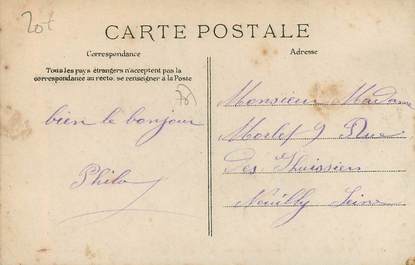 20t
CARTE POSTALE
Correspondance
Adresse
Tous les pays étrangers n'acceptent pas la
correspondance au recto, se renseigner à la Poste
bien le bonjour
Philo
Monsieur Madame
Morlef 9 Rue
des
Neuilly Seine